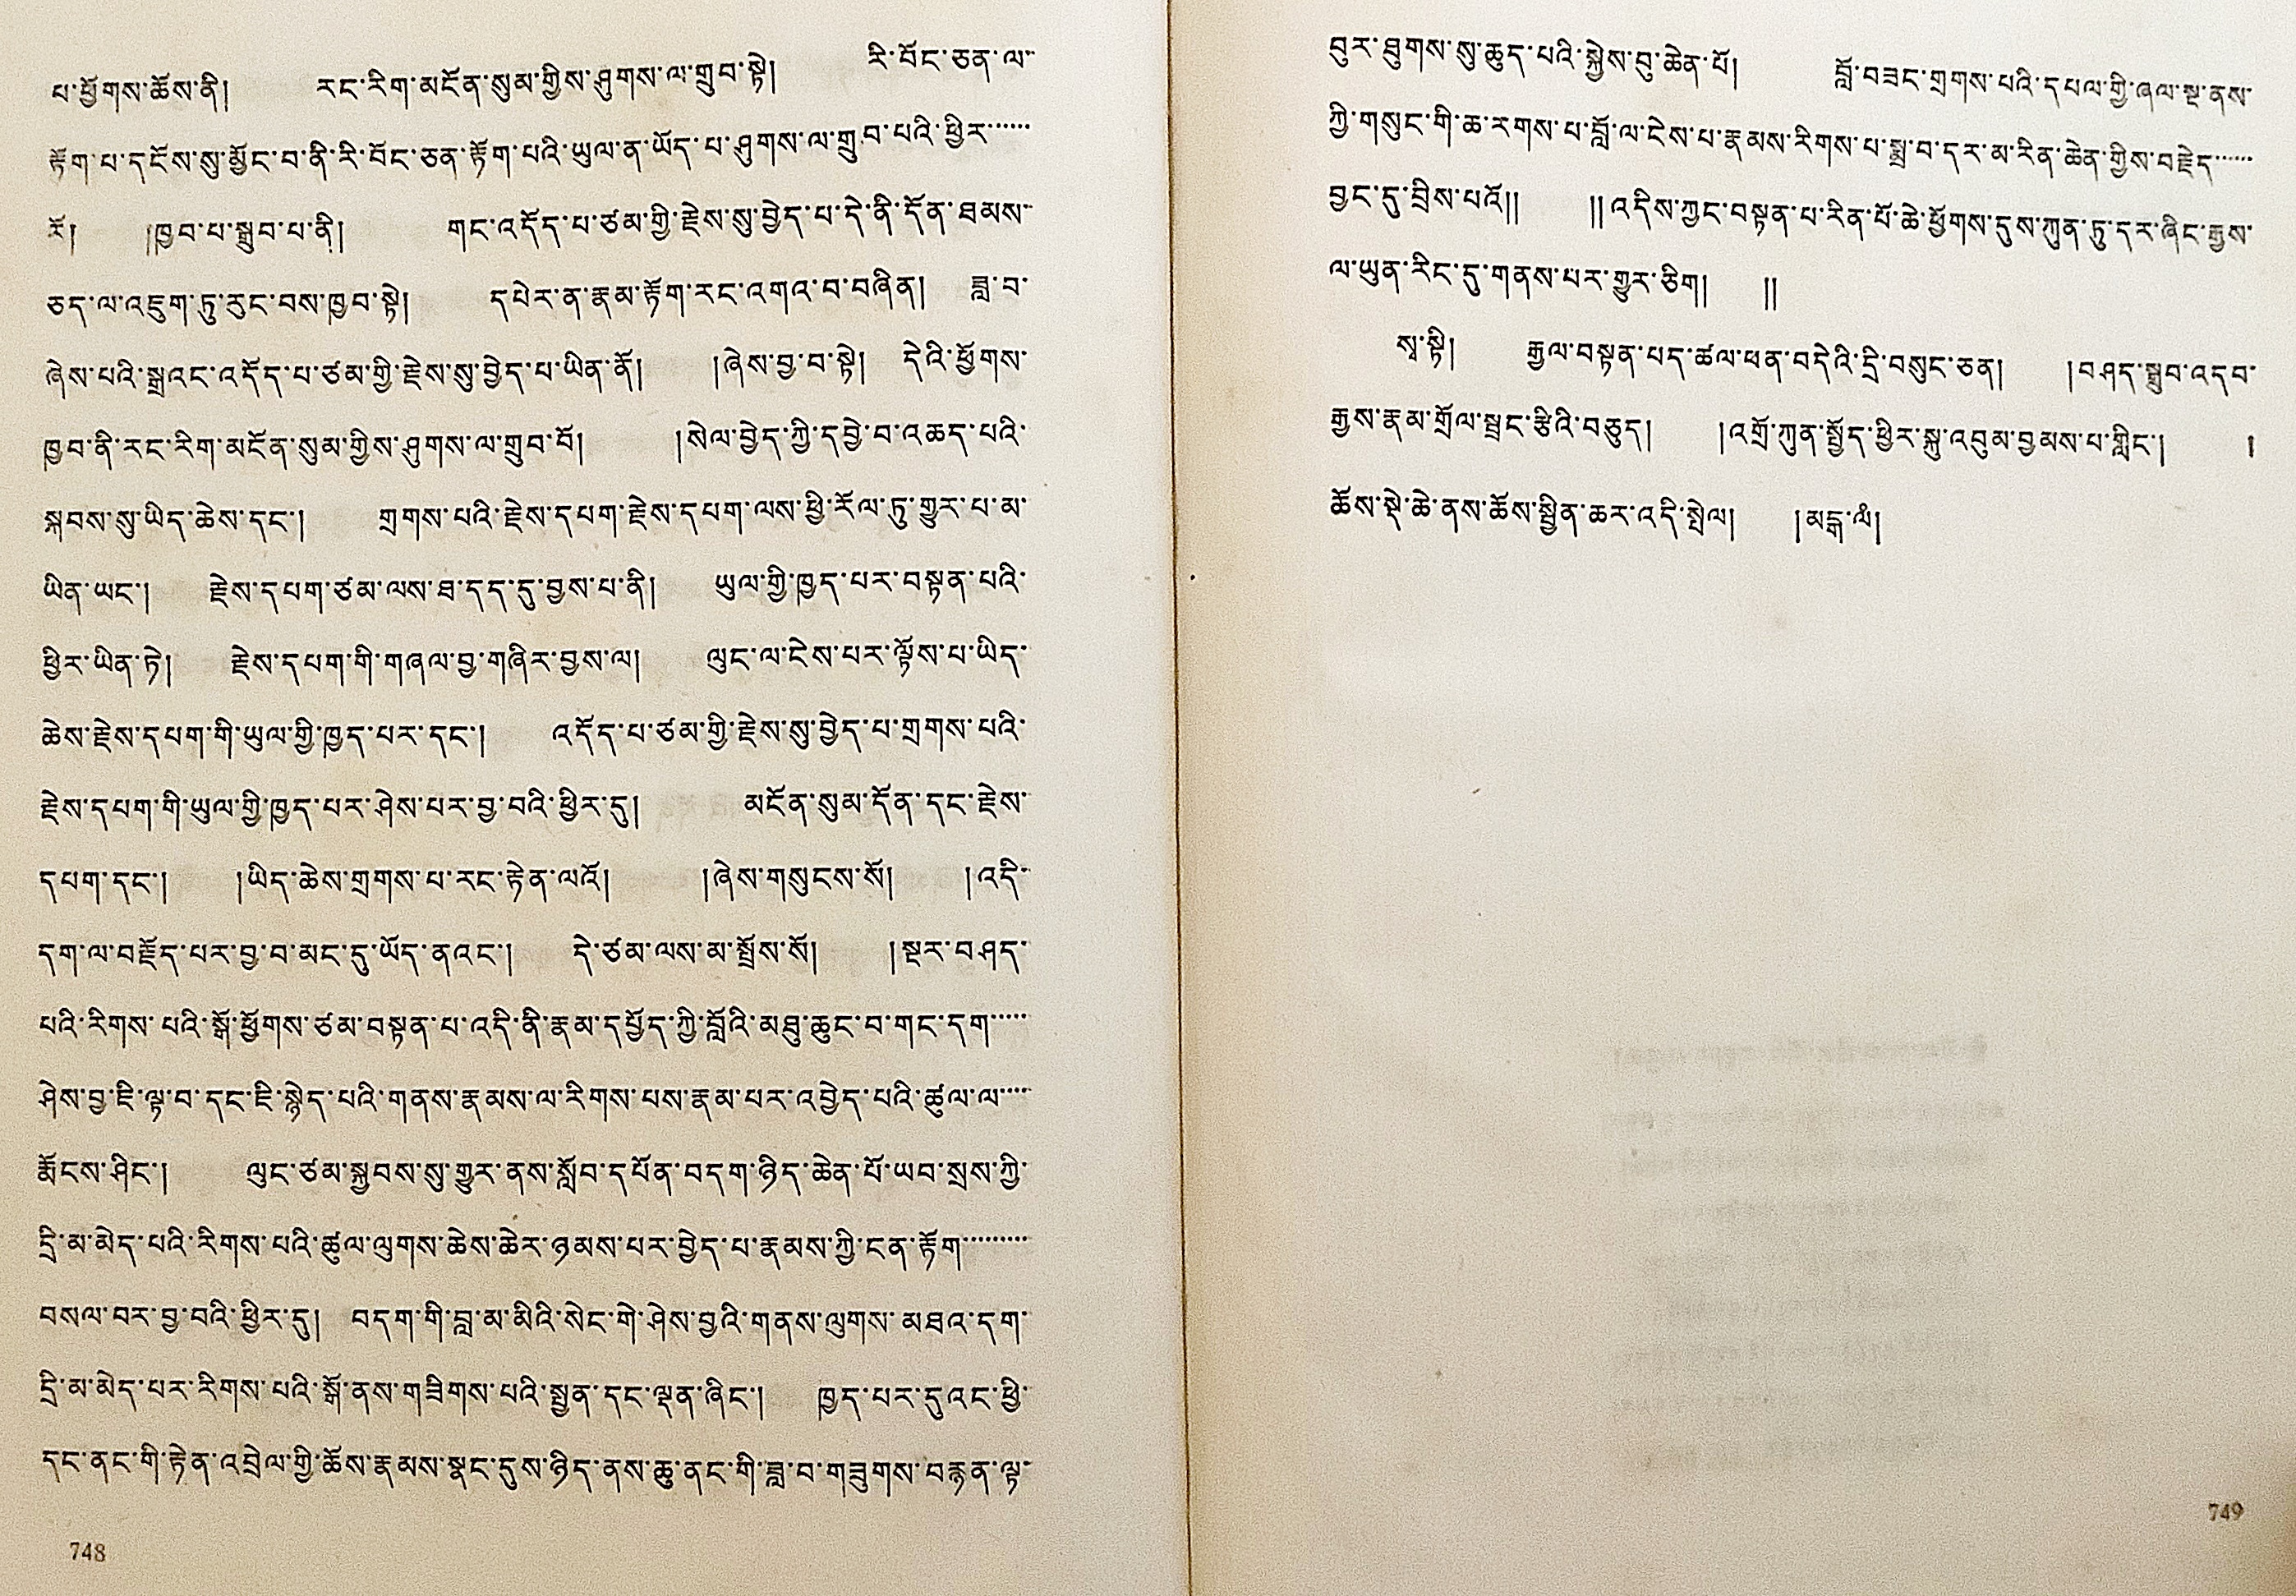 པ་ཕྱོགས་ཆོས་ནི། རང་རིག་མངོན་སུམ་གྱིས་ཤུགས་ལ་གྲུབ་སྟེ། རི་བོང་ཅན་ལ་
རྟོག་པ་དངོས་སུ་མྱོང་བ་ནི་རི་བོང་ཅན་རྟོག་པའི་ཡུལ་ན་ཡོད་པ་ཤུགས་ལ་གྲུབ་པའི་ཕྱིར་་་་་་
རོ། །ཁྱབ་པ་སྒྲུབ་པ་ནི། གང་འདོད་པ་ཙམ་གྱི་རྗེས་སུ་བྱེད་པ་དེ་ནི་དོན་ཐམས་
ཅད་ལ་འཇུག་ཏུ་རུང་བས་ཁྱབ་སྟེ། དཔེར་ན་རྣམ་རྟོག་རང་འགའ་བ་བཞིན། ཟླ་བ་
ཞེས་པའི་སྒྲའང་འདོད་པ་ཙམ་གྱི་རྗེས་སུ་བྱེད་པ་ཡིན་ནོ། །ཞེས་བྱ་བ་སྟེ། དེའི་ཕྱོགས་
ཁྱབ་ནི་རང་རིག་མངོན་སུམ་གྱིས་ཤུགས་ལ་གྲུབ་བོ། །སེལ་བྱེད་ཀྱི་དབྱེ་བ་འཆད་པའི་
སྐབས་སུ་ཡིད་ཆེས་དང་། གྲགས་པའི་རྗེས་དཔག་རྗེས་དཔག་ལས་ཕྱི་རོལ་ཏུ་གྱུར་པ་མ་
ཡིན་ཡང་། རྗེས་དཔག་ཙམ་ལས་ཐ་དད་དུ་བྱས་པ་ནི། ཡུལ་གྱི་ཁྱད་པར་བསྟན་པའི་
ཕྱིར་ཡིན་ཏེ། རྗེས་དཔག་གི་གཞལ་བྱ་གཞིར་བྱས་ལ། ལུང་ལ་ངེས་པར་ལྟོས་པ་ཡིད་
ཆེས་རྗེས་དཔག་གི་ཡུལ་གྱི་ཁྱད་པར་དང་། འདོད་པ་ཙམ་གྱི་རྗེས་སུ་བྱེད་པ་གྲགས་པའི་
རྗེས་དཔག་གི་ཡུལ་གྱི་ཁྱད་པར་ཤེས་པར་བྱ་བའི་ཕྱིར་དུ། མངོན་སུམ་དོན་དང་རྗེས་
དཔག་དང་། །ཡིད་ཆེས་གྲགས་པ་རང་རྟེན་ལའོ། །ཞེས་གསུངས་སོ། །འདི་
དག་ལ་བརྗོད་པར་བྱ་བ་མང་དུ་ཡོད་ནའང་། དེ་ཙམ་ལས་མ་སྤྲོས་སོ། །སྔར་བཤད་
པའི་རིགས་པའི་སྒོ་ཕྱོགས་ཙམ་བསྟན་པ་འདི་ནི་རྣམ་དཔྱོད་ཀྱི་བློའི་མཐུ་ཆུང་བ་གང་དག་་་་་
ཤེས་བྱ་ཇི་ལྟ་བ་དང་ཇི་སྙེད་པའི་གནས་རྣམས་ལ་རིགས་པས་རྣམ་པར་འབྱེད་པའི་ཚུལ་ལ་་་་
རྨོངས་ཤིང་། ལུང་ཙམ་སྐྱབས་སུ་གྱུར་ནས་སློབ་དཔོན་བདག་ཉིད་ཆེན་པོ་ཡབ་སྲས་ཀྱི་
དྲི་མ་མེད་པའི་རིགས་པའི་ཚུལ་ལུགས་ཆེས་ཆེར་ཉམས་པར་བྱེད་པ་རྣམས་ཀྱི་ངན་རྟོག་་་་་་་་་
བསལ་བར་བྱ་བའི་ཕྱིར་དུ། བདག་གི་བླ་མ་མིའི་སེང་གེ་ཤེས་བྱའི་གནས་ལུགས་མཐའ་དག་
དྲི་མ་མེད་པར་རིགས་པའི་སྒོ་ནས་གཟིགས་པའི་སྤྱན་དང་ལྡན་ཞིང་། ཁྱད་པར་དུའང་ཕྱི་
དང་ནང་གི་རྟེན་འབྲེལ་གྱི་ཆོས་རྣམས་སྣང་དུས་ཉིད་ནས་ཆུ་ནང་གི་ཟླ་བ་གཟུགས་བརྙན་ལྟ་
748
བུར་ཐུགས་སུ་ཆུད་པའི་སྐྱེས་བུ་ཆེན་པོ། བློ་བཟང་གྲགས་པའི་དཔལ་གྱི་ཞལ་སྔ་ནས་
ཀྱི་གསུང་གི་ཆ་རགས་པ་བློ་ལ་ངེས་པ་རྣམས་རིགས་པ་སྨྲ་བ་དར་མ་རིན་ཆེན་གྱིས་བརྗེད་་་་་་
བྱང་དུ་བྲིས་པའོ།། །།འདིས་ཀྱང་བསྟན་པ་རིན་པོ་ཆེ་ཕྱོགས་དུས་ཀུན་ཏུ་དར་ཞིང་རྒྱས་
ལ་ཡུན་རིང་དུ་གནས་པར་གྱུར་ཅིག། །།
སྭ་སྟི། རྒྱལ་བསྟན་པད་ཚལ་ཕན་བདེའི་དྲི་བསུང་ཅན། །བཤད་སྒྲུབ་འདབ་
རྒྱས་རྣམ་གྲོལ་སྦྲང་རྩིའི་བཅུད། །འགྲོ་ཀུན་སྤྱོད་ཕྱིར་སྐུ་འབུམ་བྱམས་པ་གླིང་། །
ཆོས་སྡེ་ཆེ་ནས་ཆོས་སྦྱིན་ཆར་འདི་སྤེལ། །མངྒ་ལཾ།
749